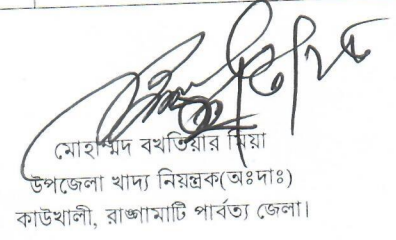 মোহাম্মদ বখতিয়ার মিয়া
উপজেলা খাদ্য নিয়ন্ত্রক(অঃদাঃ)
কাউখালী, রাঙ্গামাটি পার্বত্য জেলা।